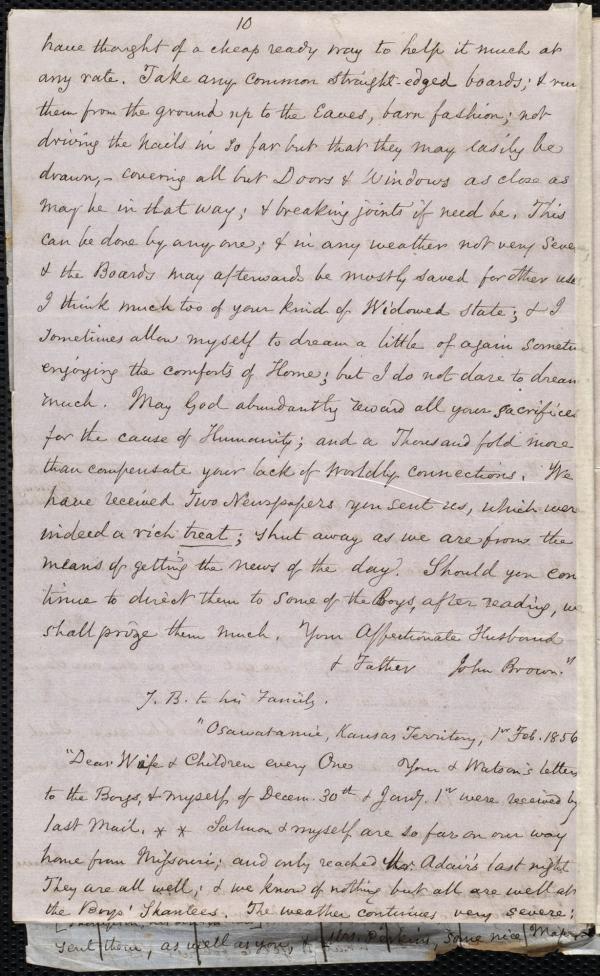 10
have thought of a cheap ready way to help it much at
any rate. Take any common straight-edged boards; & run
them from the ground up to the Eaves, barn fashion; not
driving the Nails in so far but that they may easily be
drawn, - covering all but Doors & Windows as close as
may be in that way; & breaking joints if need be. This
can be done by any one; & in any weather not very Seve
& the Boards may afterwards be mostly saved for other use
I think much too of your kind of Widowed state; & I
sometimes allow myself to dream a little of again someti
enjoying the comforts of Home; but I do not dare to dream
much. May God abundantly reward all your sacrifices
for the cause of Humanity; and a Thousand fold more
than compensate your lack of worldly connections. We
have received Two Newspapers you sent us, which were
indeed a rich treat; shut away as we are from the
means of getting the news of the day. Should you con
tinue to direct them to some of the Boys, after reading, we
shall prize them much. Your Affectionate Husband
& Father John Brown."
J. B. to his Family.
"Osawatamie, Kansas Territory, 1st Feb. 1856
"Dear Wife & Children every One Your & Watson's letters
to the Boys, & myself of Decem. 30th & Jany. 1st were received by
last Mail. * * Salmon & myself are so far on our way
home from Missouri; and only reached Mr. Adair's last night
They are all well; & we know of nothing but all are well at
the Boys' Shantees. The weather continues very severe;
sent them, as well as you, & Mrs. Perkins, some nice